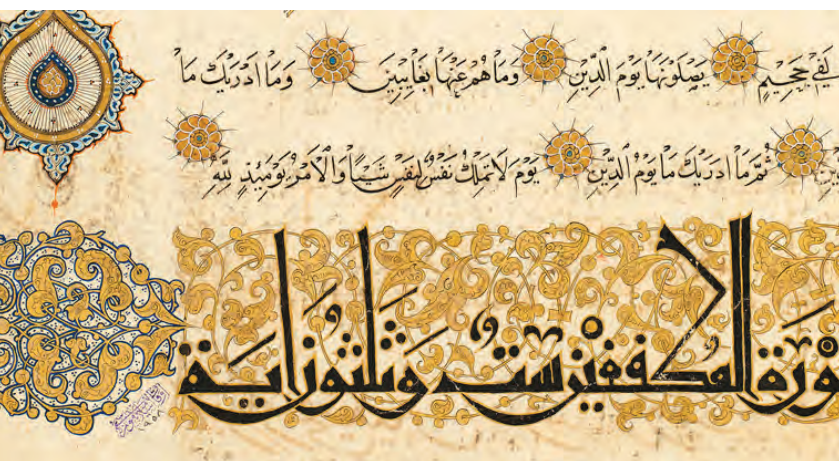 لَفِى جَحِيمٍ يَصْلَوْنَهَا يَوْمَ الدِّينِ وَمَا هُمْ عَنْهَا بِغَايِبِينَ وَمَا اَدْرَيكَ مَا
ثُمَّ مَا اَدْرَيكَ مَا يَوْمُ الدِّينِ يَوْمَ لَا تَمْلِكُ نَفْسٌ لِنَفْسٍ شَيْـًٔا وَالْاَمْرُ يَوْمَئِذٍ لِلّٰهِ
سورة المطففين ست وثلثون اية